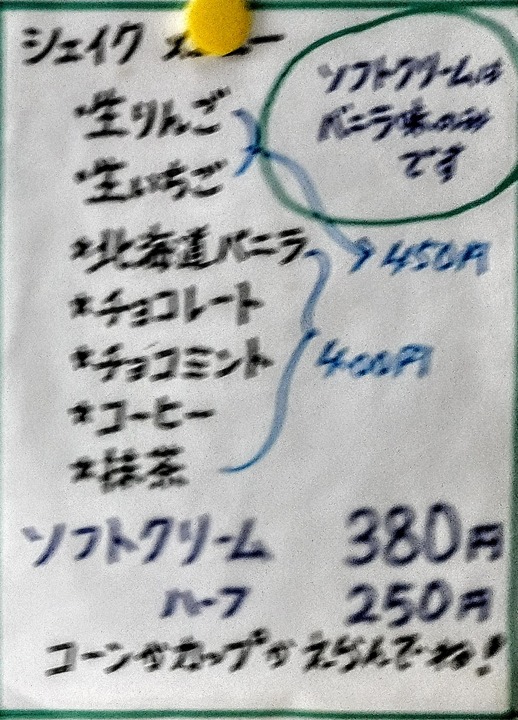 シェイク メニュー
ソフトクリームは
バニラ味のみ
です
・生りんご
・生いちご
450円
*北海道バニラ
*チョコレート
*チョコミント
400円
*コーヒー
*抹茶
ソフトクリーム 380円
ハーフ 250円
コーンかカップかえらんでね!